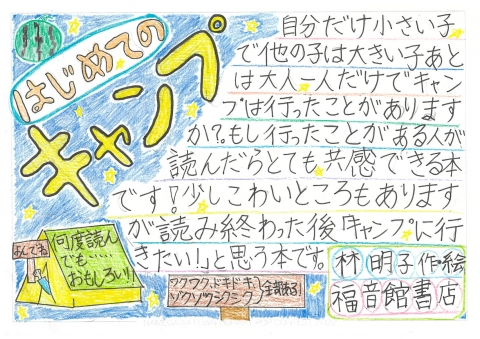 はじめての
キャンプ
自分だけ小さい子
で他の子は大きい子あと
は大人一人だけでキャン
プは行ったことがあります
か?もし行ったことがある人が
読んだらとても共感できる本
です!少しこわいところもあります
が読み終わった後「キャンプに行
きたい!」と思う本です。
よんでね
何度読ん
でも……
おもしろい!!
ワクワク、ドキドキ、
ゾクゾクシクシク
林 明子 作・絵
福音館書店